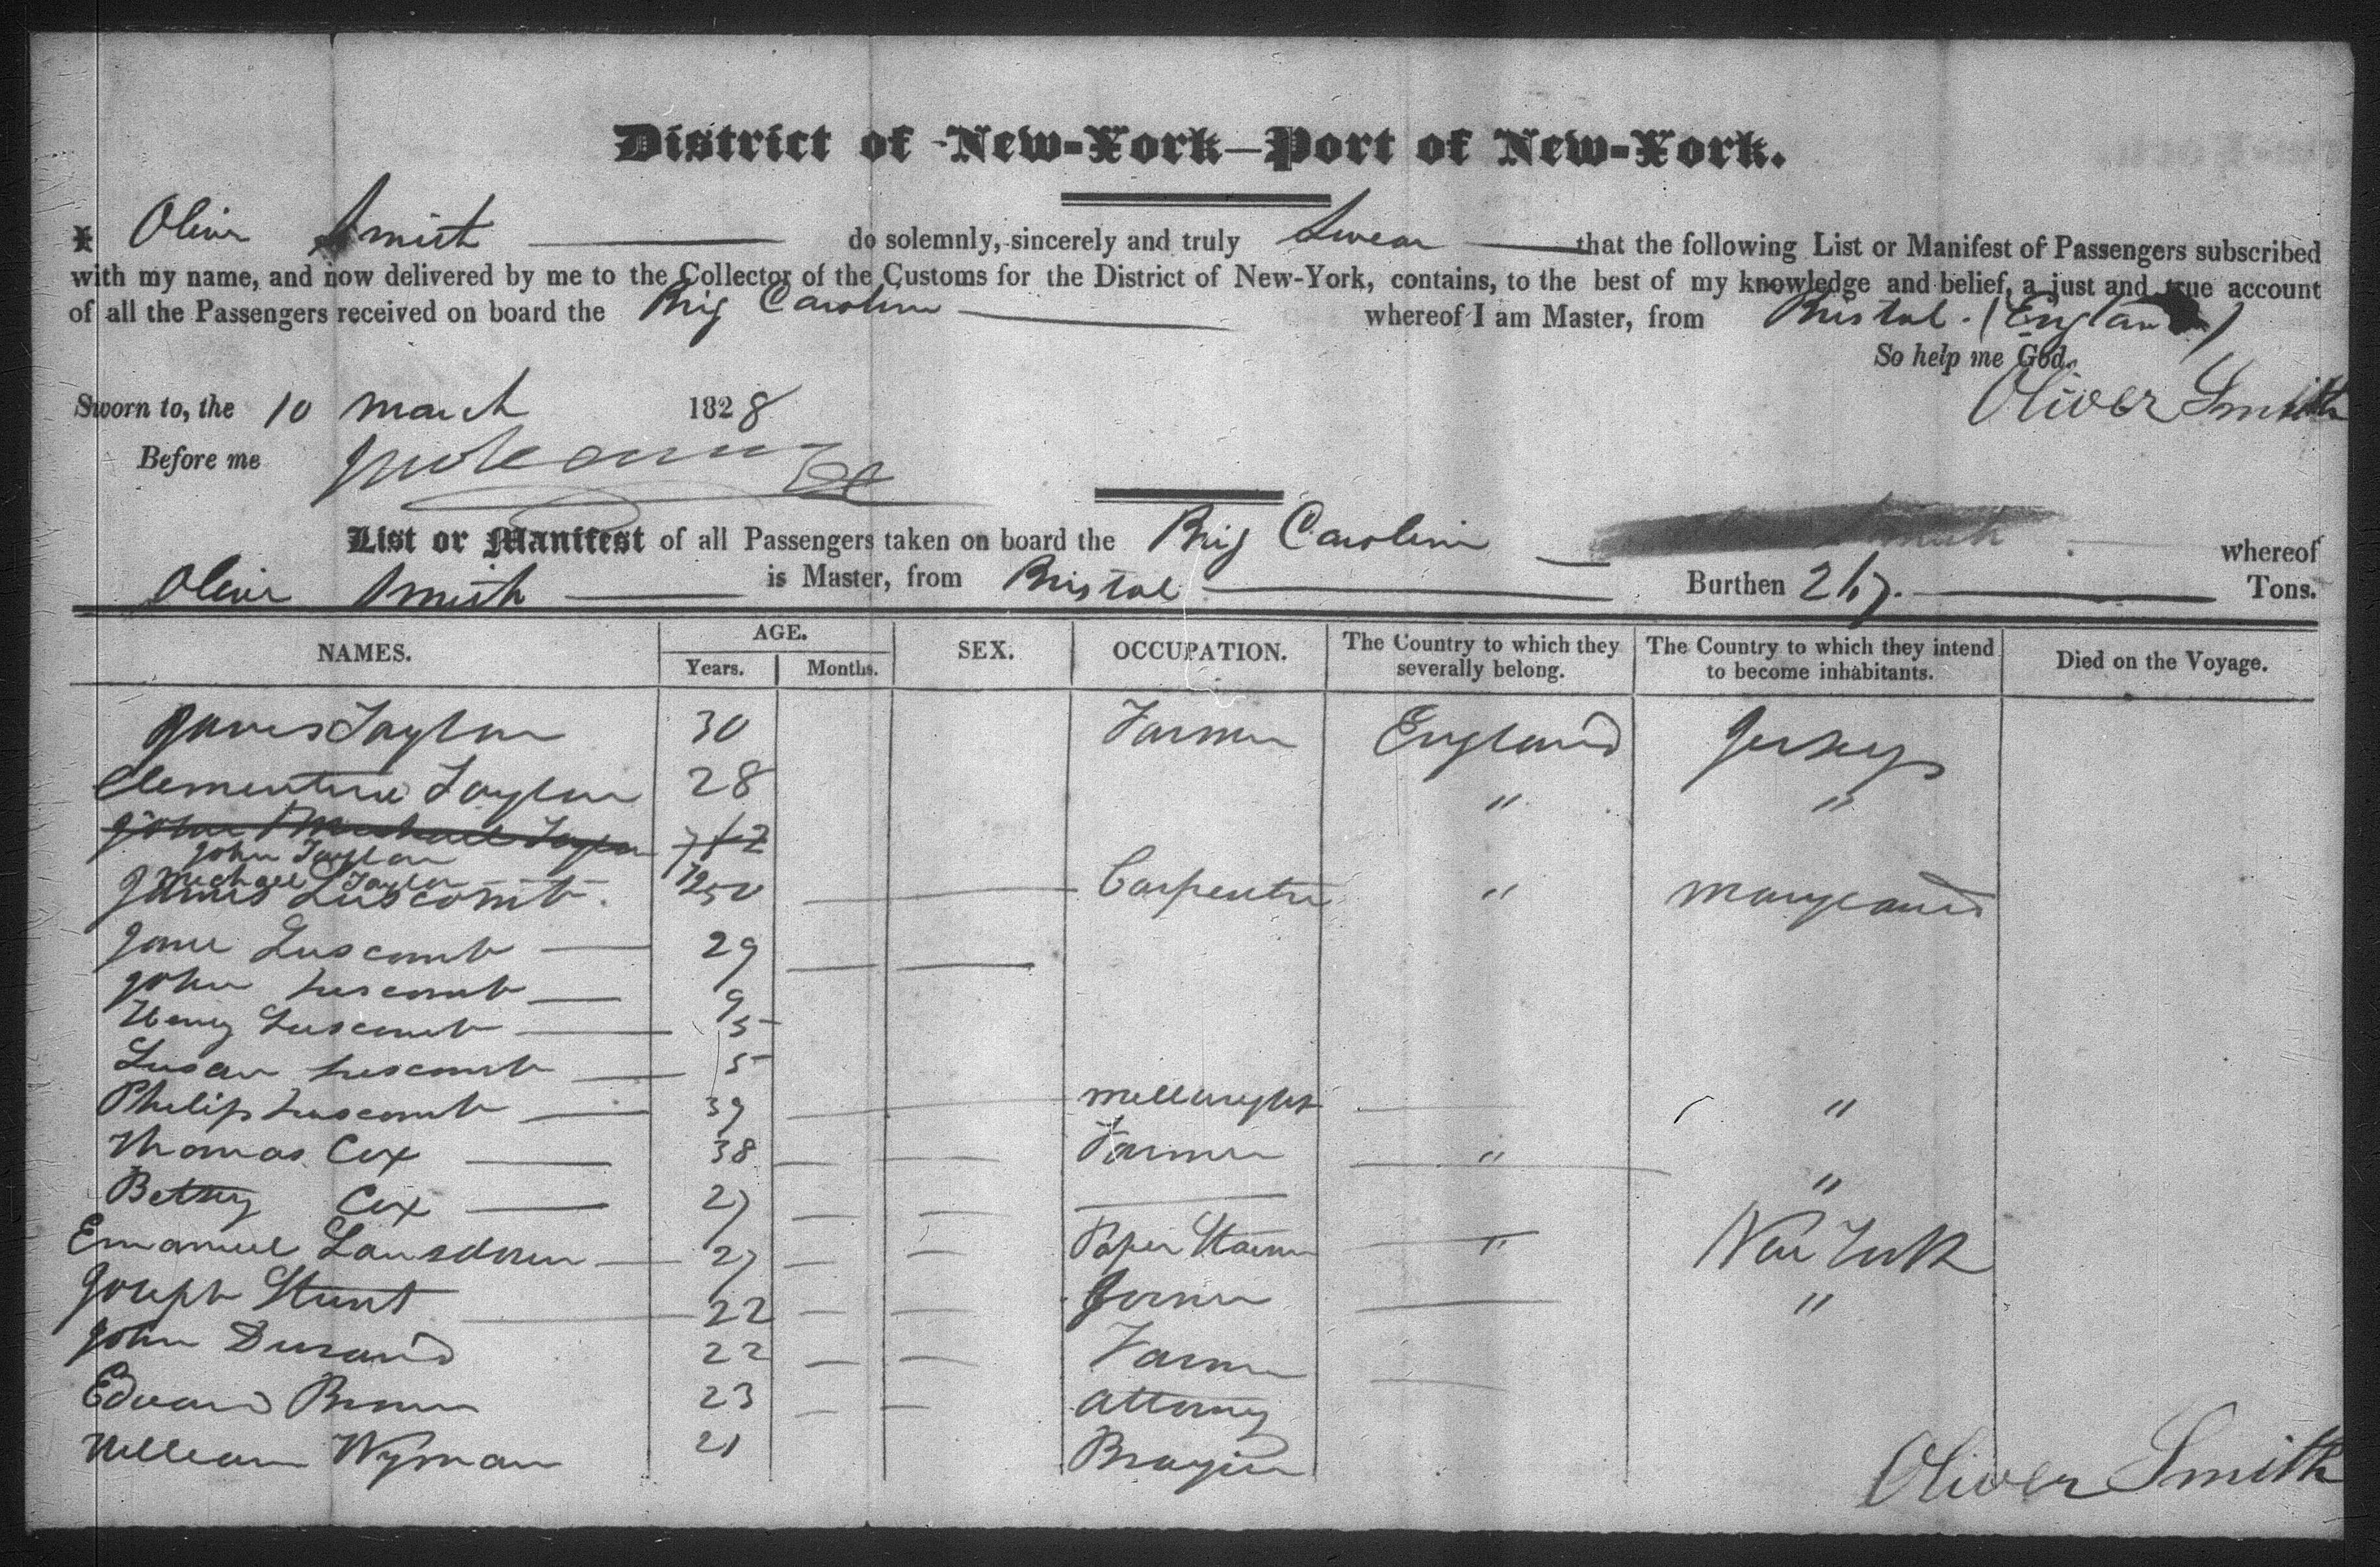 District of New-York—Port of New-York.
I Oliver Smith do solemnly, sincerely and truly Swear that the following List or Manifest of Passengers subscribed
with my name, and now delivered by me to the Collector of the Customs for the District of New-York, contains, to the best of my knowledge and belief, a just and true account
of all the Passengers received on board the Brig Caroline whereof I am Master, from Bristol. (England)
So help me God.
Oliver Smith
Sworn to, the 10 March 1828
Before me
List or Manifest of all Passengers taken on board the Brig Caroline whereof
Oliver Smith is Master, from Bristol Burthen Tons.
NAMES. AGE. Years. Months. SEX. OCCUPATION. The Country to which they severally belong. The Country to which they intend to become inhabitants. Died on the Voyage.
James Taylor 30 Farmer England Jersey
Clementine Taylor 28 " "
John Michael Taylor
John Taylor
Michael Taylor
James Luscomb. 50 Carpenter " Maryland
Jane Luscomb 29
John Luscomb 9
Henry Luscomb 5
Susan Luscomb 5
Philip Luscomb 39 Millwright "
Thomas Cox 38 Farmer " "
Betsey Cox 27
Emanuel Lansdown 27 Paper Stainer " New York
Joseph Stunt 22 "
John Durand 22 Farmer
Edward Brown 23 Attorney
William Wyman 21
Oliver Smith